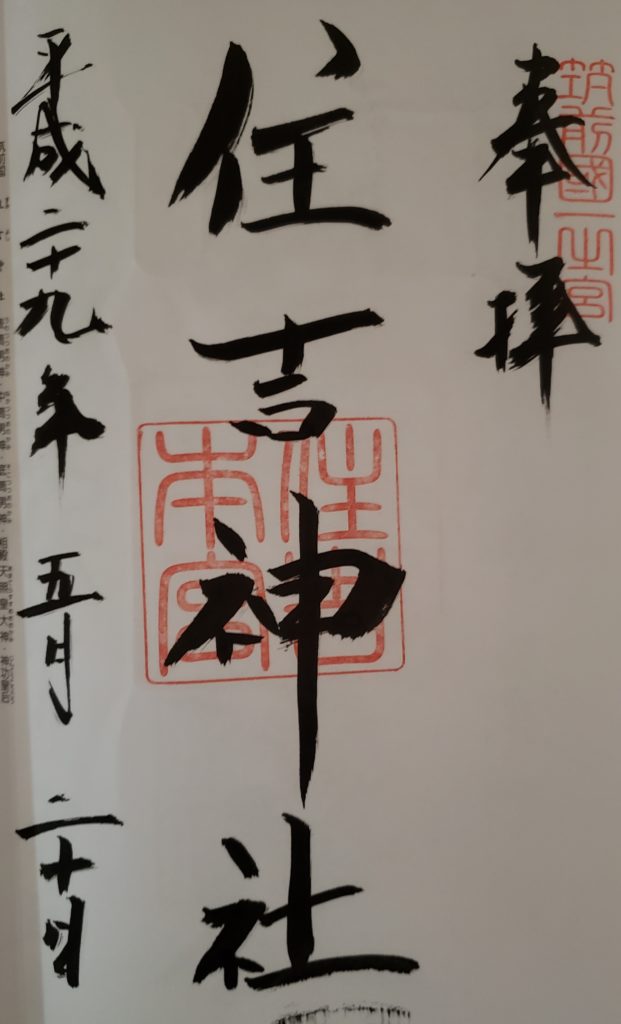 筑前國一之宮
奉拝
住吉神社
住吉
本宮
平成二十九年 五月 二十日